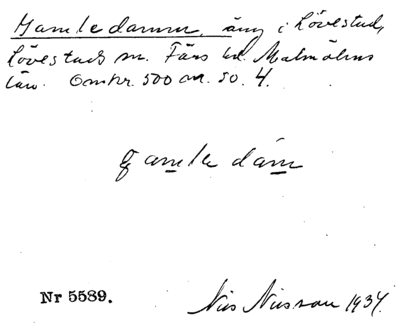 Hamledamm, äng i Lövestad,
Lövestads sn. Färs hd. Malmöhus
län. Omkr. 500 m. so. 4.
gamle dám
Nr 5589.
Nils Nilsson 1934.